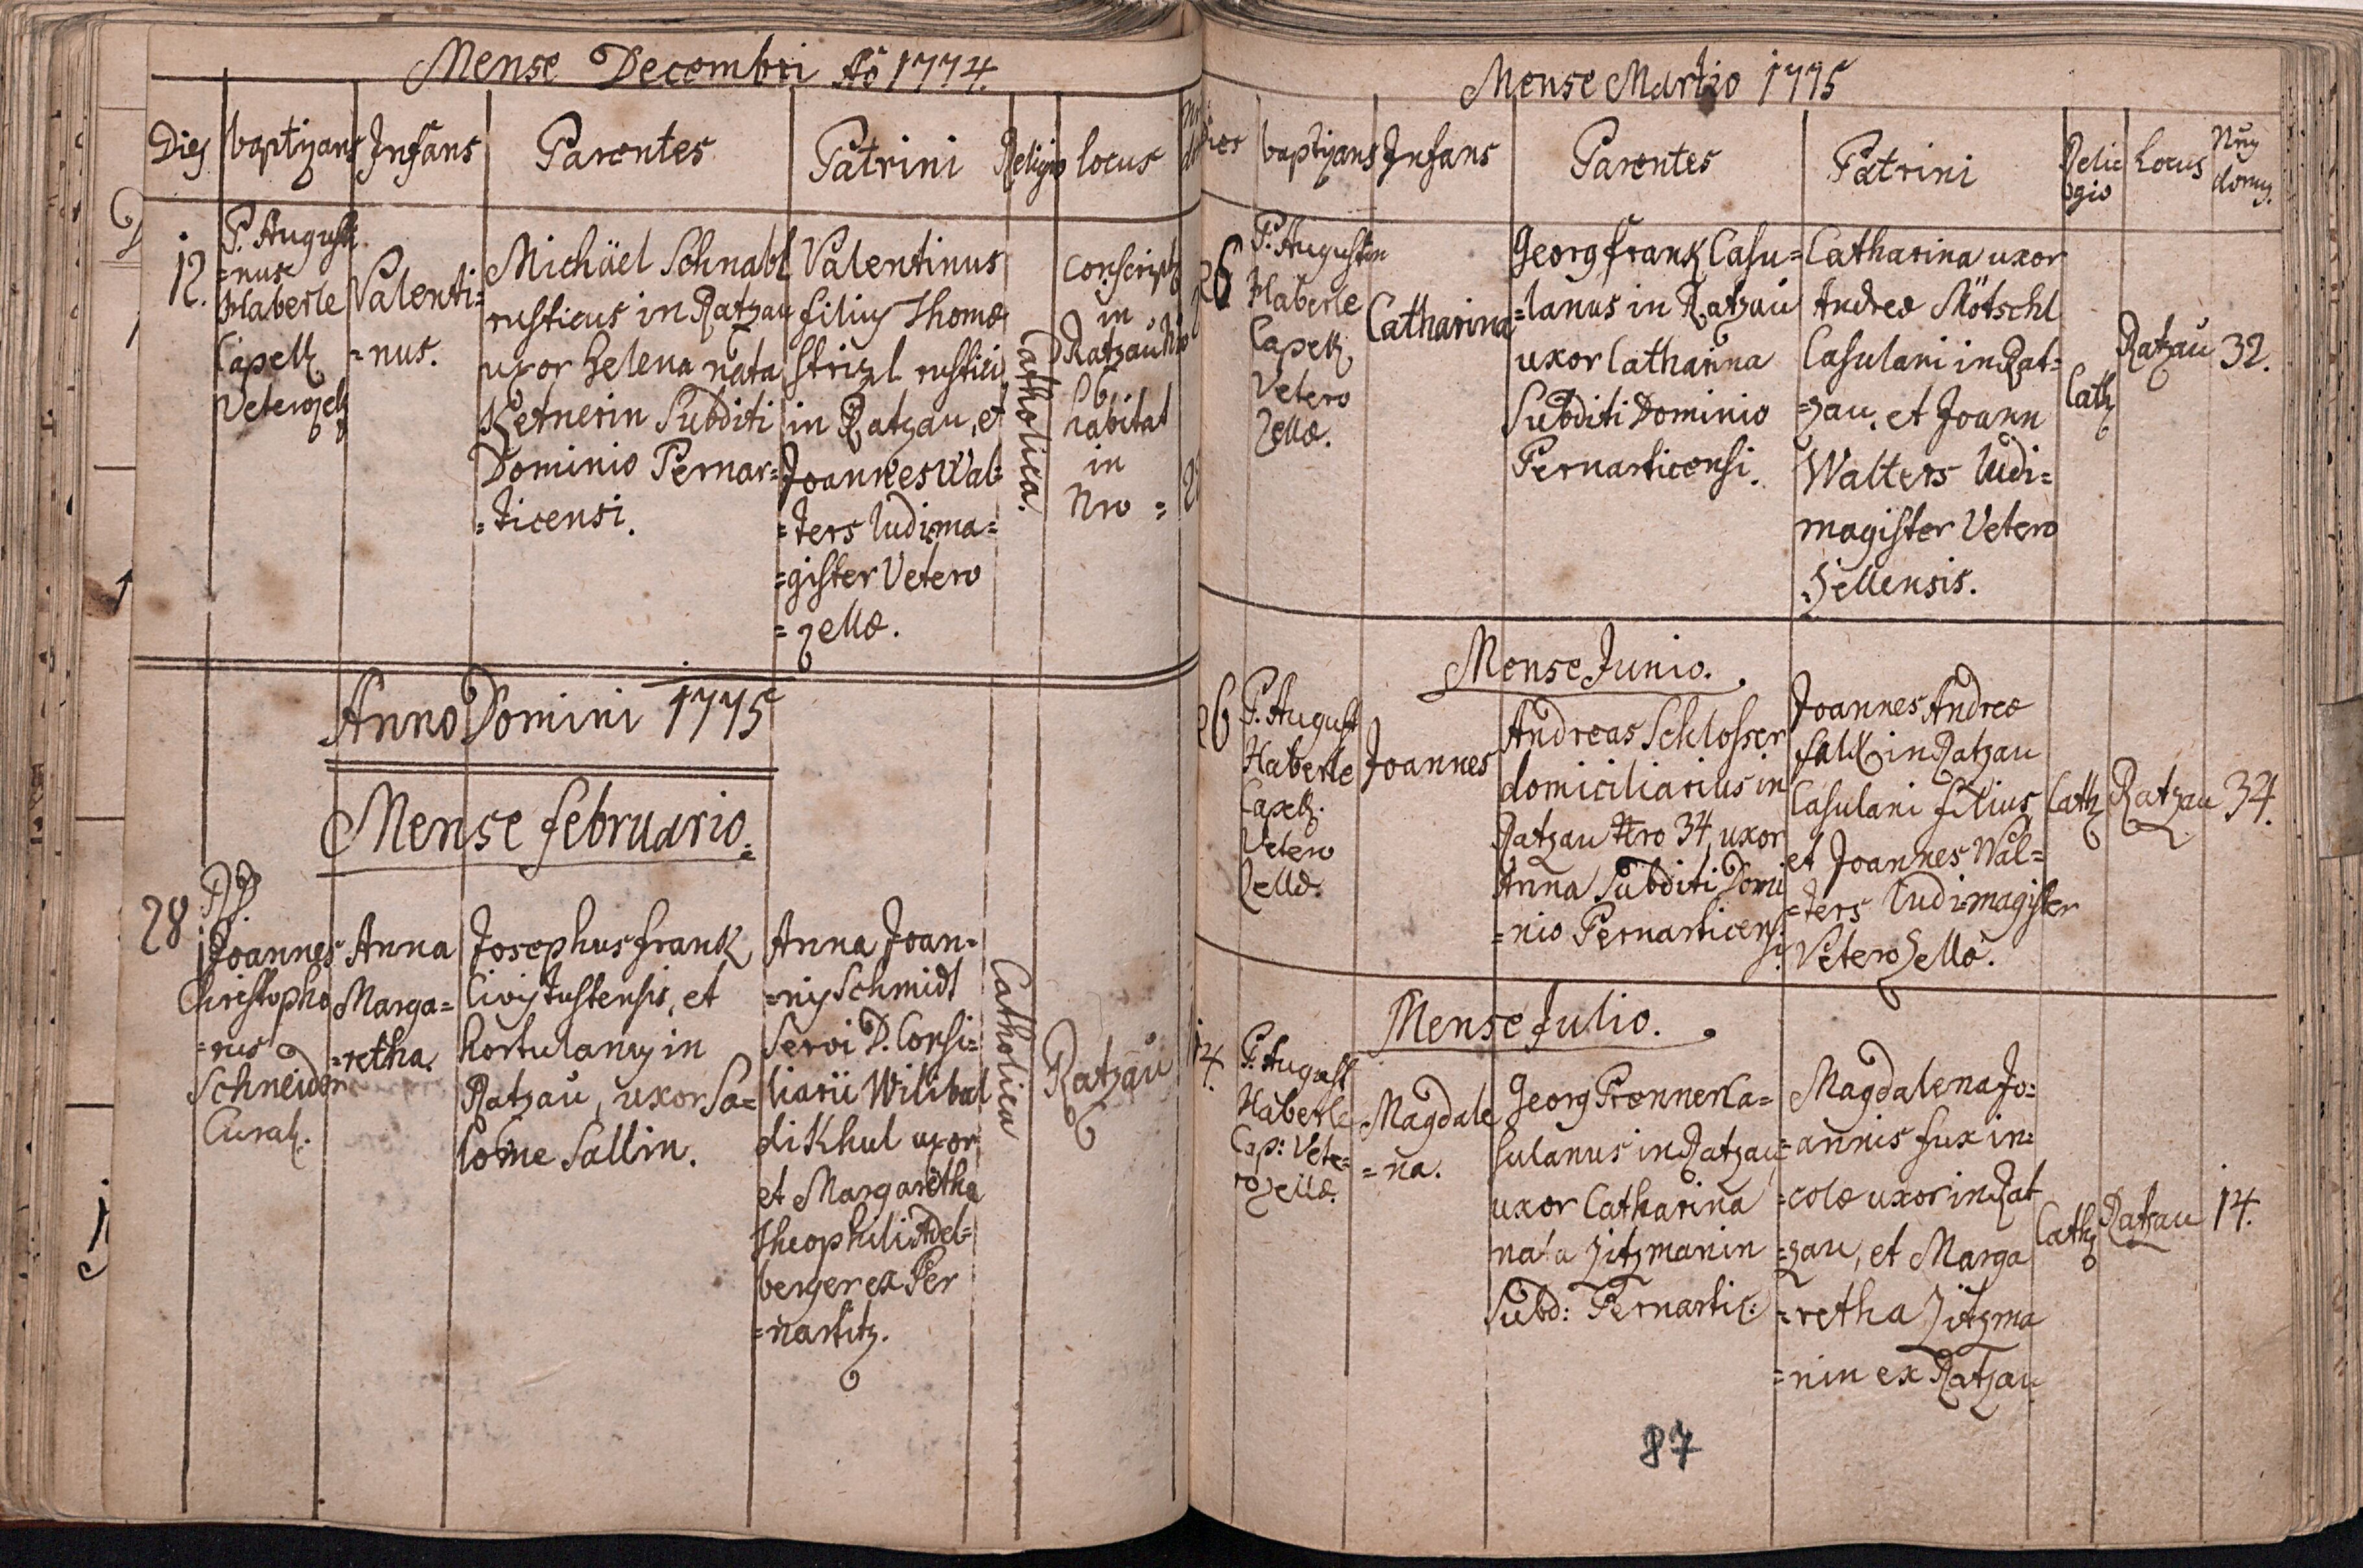 Mense Decembri Aõ 1774.
Dies baptizans Infans Parentes Patrini Religio locus
12.
P. Augusti
=nus
Haberle
Capell
Veterozell
Valenti=
=nus.
Michäel Schnabl
rusticus in Ratzau
uxor Helena nata
Ketnerin Subditi
Dominio Pernar=
=ticensi.
Valentinus
filius Thomæ
Strizl rustici
in Ratzau, et
Joannes Wal=
=ters ludima=
=gister Vetero
=zellæ.
Catholica.
conscript
in
Ratzau Nro
habitat
in
Nro =
Anno Domini 1775
Mense februario.
28.
Joannes
Christopho
=rus
Schneider
Curat.
Anna
Marga=
=retha.
Josephus frank
Civis Tustensis, et
hortulanus in
Ratzau, uxor Sa=
lome Sallin.
Anna Joan=
=nis Schmidt
Servi D. Consi=
liarii Wilibal
di Khul uxor
et Margaretha
Theophili Adel=
berger ex Per
=nartitz.
Catholica
Ratzau
Mense Martio 1775
Dies baptizans Infans Parentes Patrini Reli Locus Nrus
=gio domus.
26
P. Augustin
Haberle
Capell
Vetero
Zellæ.
Catharina
Georg frank Casu=
=lanus in Ratzau
uxor Catharina
Subditi Dominio
Pernarticensi.
Catharina uxor
Andreæ Mötschl
Casulani in Rat=
=zau, et Joann
Walters ludi=
magister Vetero
=Zellensis.
Cath
Ratzau
32.
Mense Junio.
26
P. August
Haberle
Capell.
Vetero
Zellæ.
Joannes
Andreas Schlosser
domiciliarius in
Ratzau Nro 34, uxor
Anna Subditi Domi
=nio Pernarticen
si.
Joannes Andreæ
falk in Ratzau
Casulani filius,
et Joannes Wal=
=ters ludimagister
Vetero Zellæ.
Cath
Ratzau
34.
Mense Julio.
14.
P. August
Haberle
Cap: Vete=
rozellæ.
Magdale
=na.
Georg Prenner Ca=
sulanus in Ratzau
uxor Catharina
nata Zitzmanin
Subd: Pernartic:
Magdalena Jo=
=annis fux in=
=colæ uxor in Rat
=zau, et Marga
=retha Zitzma
=nin ex Ratzau
Cath
Ratzau
14.
87